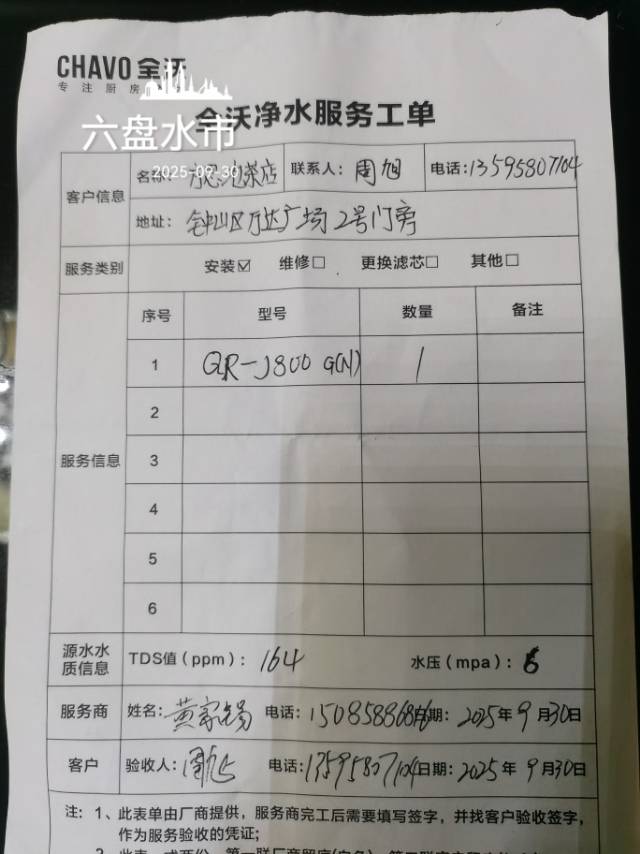 CHAVO 全沃
专注厨房
六盘水市
2025-09-30
全沃净水服务工单
客户信息
名称: 联系人: 周旭 电话: 13595807104
地址: 钟山区万达广场2号门旁
服务类别 安装☑ 维修□ 更换滤芯□ 其他□
服务信息
序号 型号 数量 备注
1 QR-J800 G(N) 1
2
3
4
5
6
源水水质信息 TDS值(ppm): 164 水压(mpa):
服务商 姓名: 黄家锡 电话: 日期: 2025年9月30日
客户 验收人: 周旭 电话: 13595807104 日期: 2025年9月30日
注: 1、此表单由厂商提供,服务商完工后需要填写签字,并找客户验收签字,
作为服务验收的凭证;